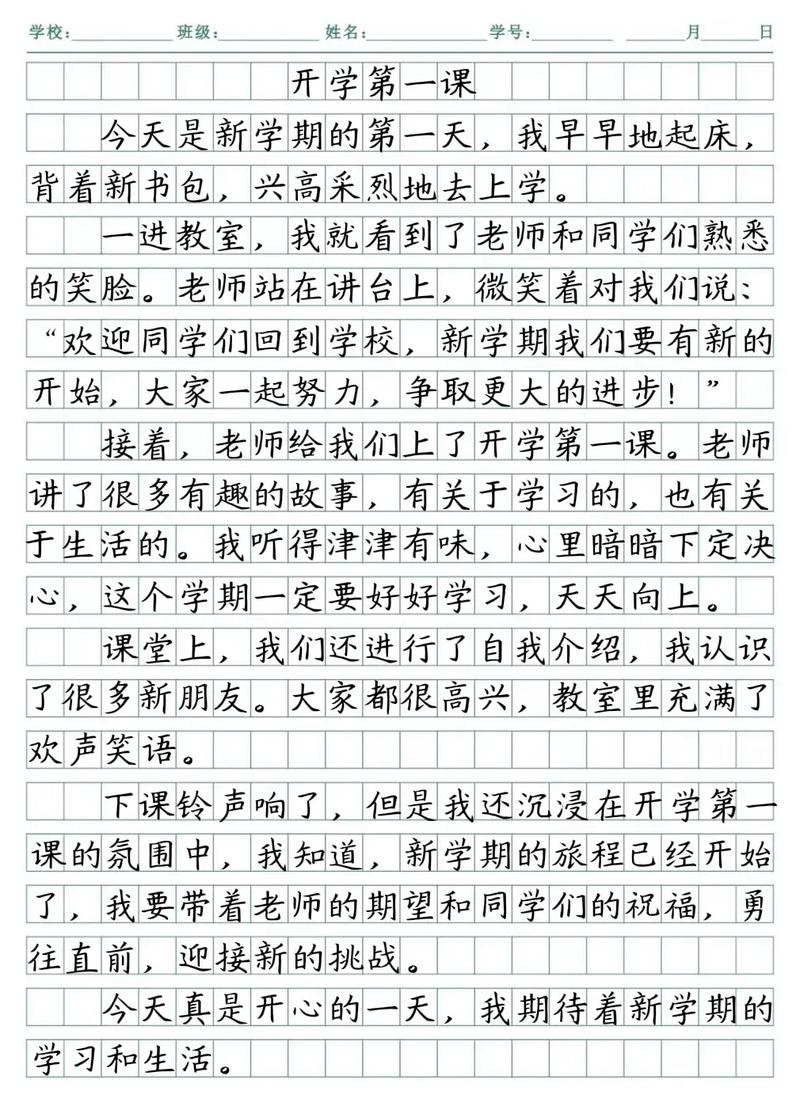 学校： 班级： 姓名： 学号： 月 日
开学第一课
今天是新学期的第一天，我早早地起床，
背着新书包，兴高采烈地去上学。
一进教室，我就看到了老师和同学们熟悉
的笑脸。老师站在讲台上，微笑着对我们说：
“欢迎同学们回到学校，新学期我们要有新的
开始，大家一起努力，争取更大的进步！”
接着，老师给我们上了开学第一课。老师
讲了很多有趣的故事，有关于学习的，也有关
于生活的。我听得津津有味，心里暗暗下定决
心，这个学期一定要好好学习，天天向上。
课堂上，我们还进行了自我介绍，我认识
了很多新朋友。大家都很高兴，教室里充满了
欢声笑语。
下课铃声响了，但是我还沉浸在开学第一
课的氛围中，我知道，新学期的旅程已经开始
了，我要带着老师的期望和同学们的祝福，勇
往直前，迎接新的挑战。
今天真是开心的一天，我期待着新学期的
学习和生活。